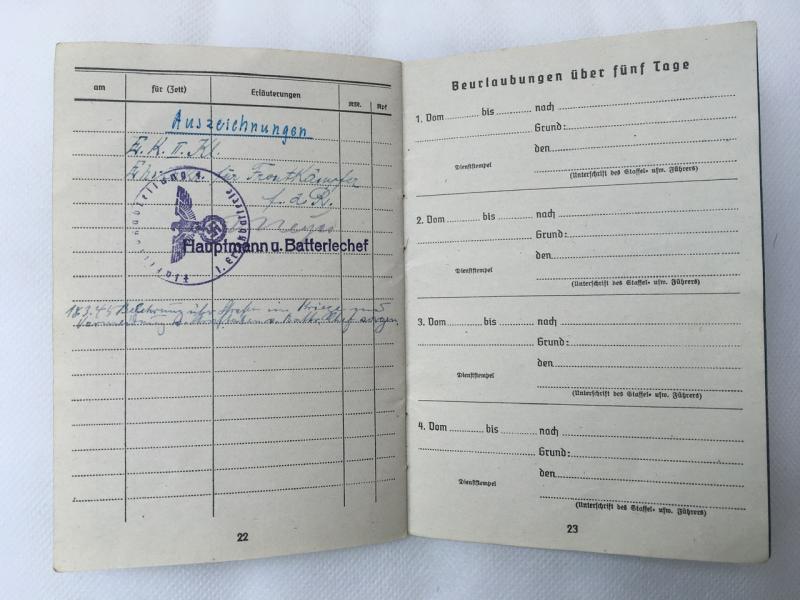 am für (Zeit) Erläuterungen RM. Rpf
Auszeichnungen
E.K. II. Kl.
der Frontkämpfer
f. d. R.
Hauptmann u. Batteriechef
18.3.45 Belehrung über Strafen im Kriege und
22
Beurlaubungen über fünf Tage
1. Vom .......... bis ......... nach
Grund:
den
Dienststempel
(Unterschrift des Staffel- usw. Führers)
2. Vom .......... bis ......... nach
Grund:
den
Dienststempel
(Unterschrift des Staffel- usw. Führers)
3. Vom .......... bis ......... nach
Grund:
den
Dienststempel
(Unterschrift des Staffel- usw. Führers)
4. Vom .......... bis ......... nach
Grund:
den
Dienststempel
(Unterschrift des Staffel- usw. Führers)
23